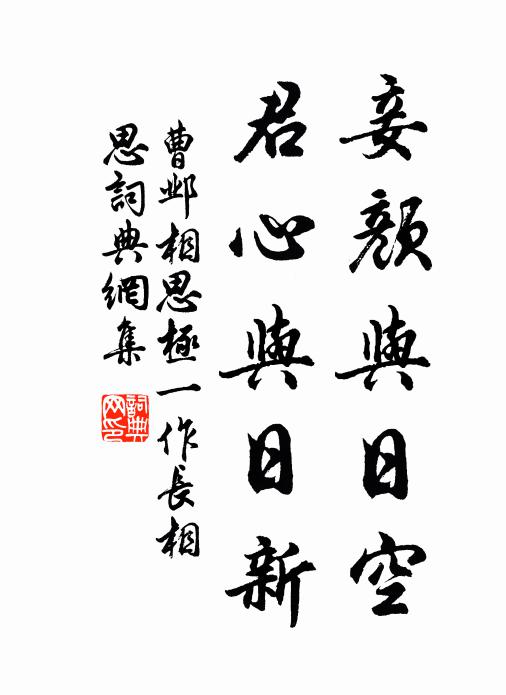 妾顏與日空
君心與日新
曹邺相思極一作長相
思詞典網集
詞典
网印